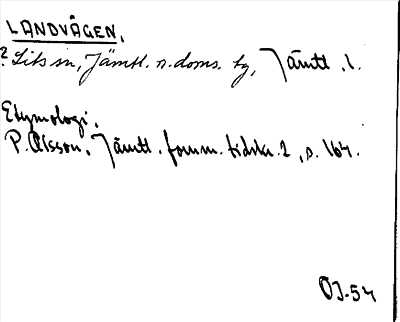 LANDVÅGEN.
? Lits sn, Jämtl. n. doms. tg, Jämtl. l.
Etymologi.
P. Olsson, Jämtl. fornm. tidskr. 2, s. 164.
OJ-54